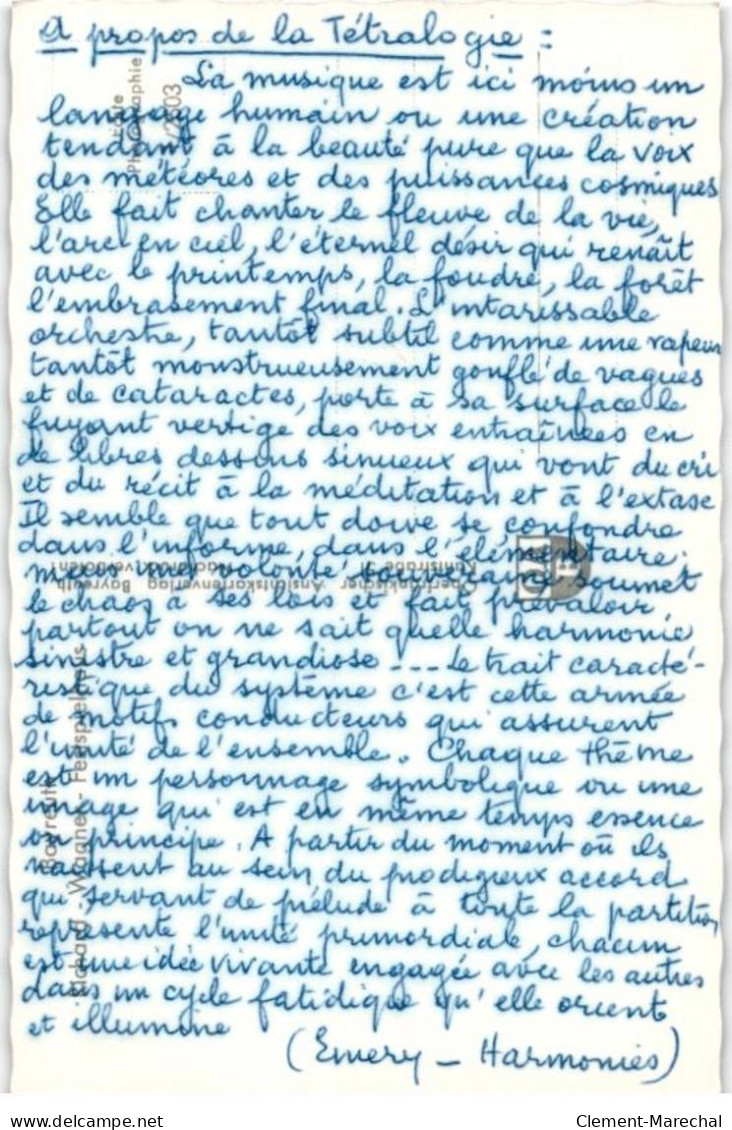 A propos de la Tétralogie :
La musique est ici moins un
language humain ou une création
tendant à la beauté pure que la voix
des météores et des puissances cosmiques
Elle fait chanter le fleuve de la vie,
l'arc en ciel, l'éternel désir qui renaît
avec le printemps, la foudre, la forêt
l'embrasement final. L'intarissable
orchestre, tantôt subtil comme une vapeur
tantôt monstrueusement gonflé de vagues
et de cataractes, porte à sa surface le
fuyant vertige des voix entraînées en
de libres dessins sinueux qui vont du cri
et du récit à la méditation et à l'extase
Il semble que tout doive se confondre
dans l'informe, dans l'élémentaire.
mais la volonté souveraine soumet
le chaos à ses lois et fait prévaloir
partout on ne sait quelle harmonie
sinistre et grandiose --- Le trait caracté-
ristique du système c'est cette armée
de motifs conducteurs qui assurent
l'unité de l'ensemble. Chaque thème
est un personnage symbolique ou une
image qui est en même temps essence
ou principe. A partir du moment où ils
naissent au sein du prodigieux accord
qui servant de prélude à toute la partition
représente l'unité primordiale, chacun
est une idée vivante engagée avec les autres
dans un cycle fatidique qu'elle oriente
et illumine
(Emery - Harmonies)
Echte
Photographie
/2303
Oberfränkischer Ansichtskartenverlag Bayreuth
Nachdruck verboten
Bayreuth
Richard - Wagner - Festspielhaus
Clement-Marechal